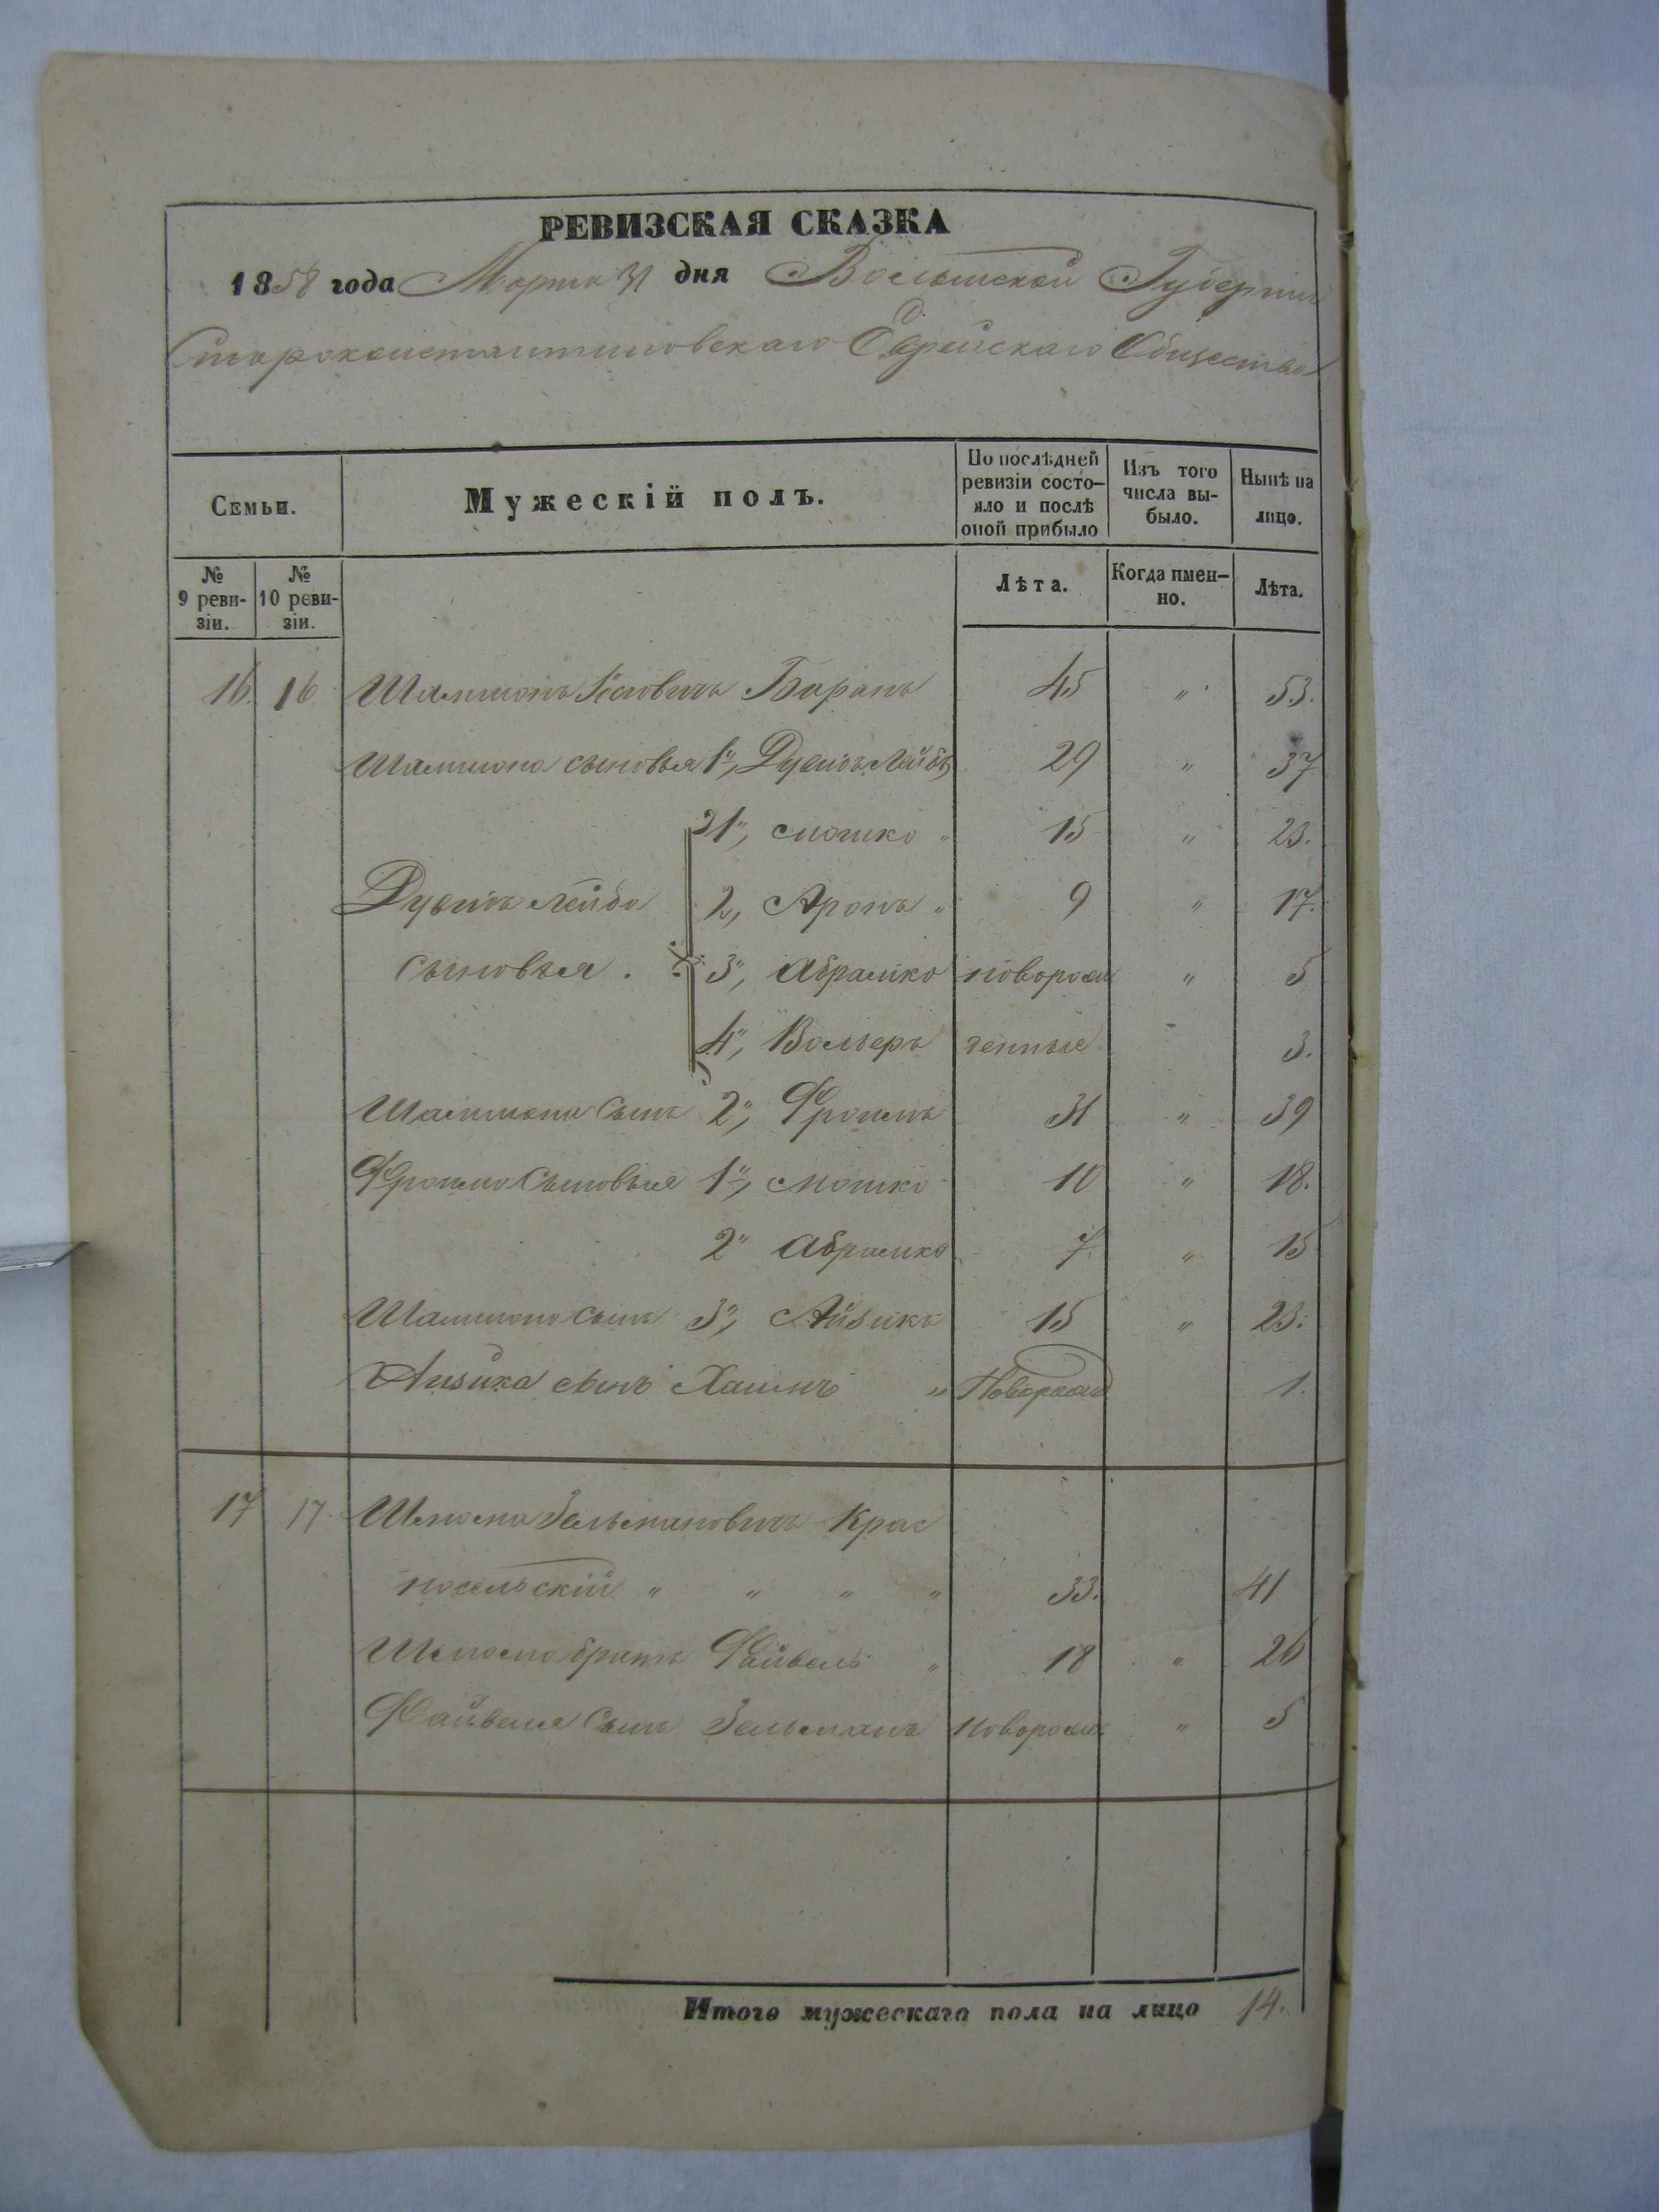 РЕВИЗСКАЯ СКАЗКА
1858 года Марта 31 дня Волынской Губерніи
Староконстантиновскаго Еврейскаго Общества
Семьи.
Мужескій полъ.
По послѣдней ревизіи состо-
яло и послѣ оной прибыло
Изъ того числа вы-
было.
Нынѣ на лицо.
№ 9 реви-
зіи.
№ 10 реви-
зіи.
Лѣта.
Когда имен-
но.
Лѣта.
16. 16 Баранъ 45 " 53.
сыновья 1", Лейба 29 " 37
1", Мошко " 15 " 23.
Лейба 2, Аронъ " 9 " 17.
сыновья. 3", Абрамко новорож " 5
4", Вольфъ денные 3.
сынъ 2", Фроимъ 31 " 39
Фроима сыновья 1", Мошко 10 " 18.
2" Абрамко 7 " 15
сынъ 3", Айзикъ 15 " 23.
Айзика сынъ Хаимъ " Новорожд 1.
17 17. Шлиома Зельмановичъ Крас
носельскій " " " " 33. 41
братъ Файвель " 18 " 26
Файвеля сынъ Зельманъ новорожд " 5
Итого мужескаго пола на лицо 14.